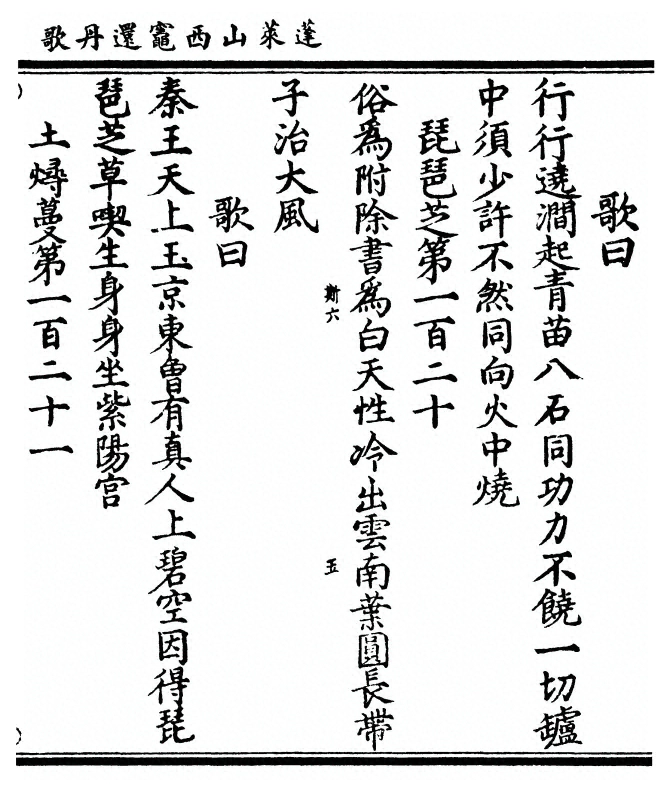 蓬萊山西竈還丹歌
歌曰
行行遶澗起青苗八石同功力不饒一切鑪
中須少許不然同向火中燒
琵琶芝第一百二十
俗為附除書為白天性冷出雲南葉圓長帶
斯六
五
子治大風
歌曰
秦王天上玉京東魯有真人上碧空因得琵
琶芝草喫生身身坐紫陽宮
土燖蔓第一百二十一